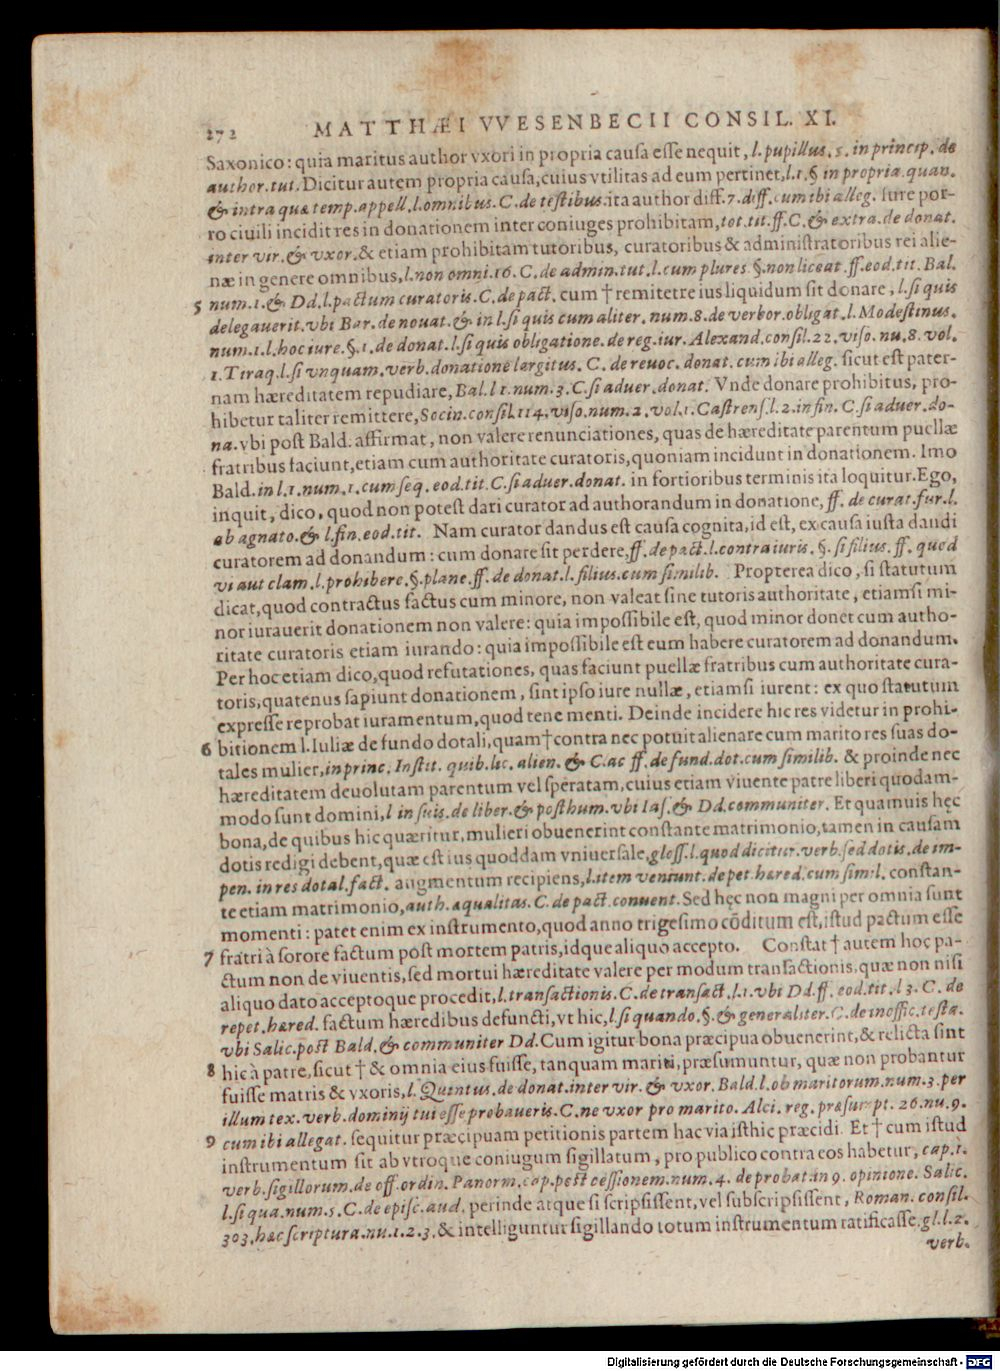 272 MATTHÆI VVESENBECII CONSIL. XI.
Saxonico: quia maritus author vxori in propria causa esse nequit, l. pupillus. 5. in princip. de
author. tut. Dicitur autem propria causa, cuius vtilitas ad eum pertinet, l. 1. § in propria. quan.
& intra quæ temp. appell. l. omnibus. C. de testibus. ita author diff. 7. diff. cum ibi alleg. Iure por-
ro ciuili incidit res in donationem inter coniuges prohibitam, tot. tit. ff. C. & extra. de donat.
inter vir. & vxor. & etiam prohibitam tutoribus, curatoribus & administratoribus rei alie-
næ in genere omnibus, l. non omni. 16. C. de admin. tut. l. cum plures. §. non liceat. ff. eod. tit. Bal.
5 num. 1. & Dd. l. pactum curatoris. C. de pact. cum † remitetre ius liquidum sit donare, l. si quis
delegauerit. vbi Bar. de nouat. & in l. si quis cum aliter. num. 8. de verbor. obligat. l. Modestinus.
num. 1. l. hoc iure. §. 1. de donat. l. si quis obligatione. de reg. iur. Alexand. consil. 22. viso. nu. 8. vol.
1. Tiraq. l. si vnquam. verb. donatione largitus. C. de reuoc. donat. cum ibi alleg. sicut est pater-
nam hæreditatem repudiare, Bal. l 1. num. 3. C. si aduer. donat. Vnde donare prohibitus, pro-
hibetur taliter remittere, Socin. consil. 114. viso. num. 2. vol. 1. Castrens. l. 2. in fin. C. si aduer. do-
na. vbi post Bald. affirmat, non valere renunciationes, quas de hæreditate parentum puellæ
fratribus faciunt, etiam cum authoritate curatoris, quoniam incidunt in donationem. Imo
Bald. in l. 1. num. 1. cum seq. eod. tit. C. si aduer. donat. in fortioribus terminis ita loquitur. Ego,
inquit, dico, quod non potest dari curator ad authorandum in donatione, ff. de curat. fur. l.
ab agnato. & l. fin. eod. tit. Nam curator dandus est causa cognita, id est, ex causa iusta dandi
curatorem ad donandum: cum donare sit perdere, ff. de pact. l. contra iuris. §. si filius. ff. quod
vi aut clam. l. prohibere. §. plane. ff. de donat. l. filius. cum similib. Propterea dico, si statutum
dicat, quod contractus factus cum minore, non valeat sine tutoris authoritate, etiamsi mi-
nor iurauerit donationem non valere: quia impossibile est, quod minor donet cum autho-
ritate curatoris etiam iurando: quia impossibile est eum habere curatorem ad donandum.
Per hoc etiam dico, quod refutationes, quas faciunt puellæ fratribus cum authoritate cura-
toris, quatenus sapiunt donationem, sint ipso iure nullæ, etiamsi iurent: ex quo statutum
expresse reprobat iuramentum, quod tene menti. Deinde incidere hic res videtur in prohi-
6 bitionem l. Iuliæ de fundo dotali, quam † contra nec potuit alienare cum marito res suas do-
tales mulier, in princ. Instit. quib. lic. alien. & C. ac ff. de fund. dot. cum similib. & proinde nec
hæreditatem deuolutam parentum vel speratam, cuius etiam viuente patre liberi quodam-
modo sunt domini, l in suis. de liber. & posthum. vbi Ias. & Dd. communiter. Et quamuis hęc
bona, de quibus hic quæritur, mulieri obuenerint constante matrimonio, tamen in causam
dotis redigi debent, quæ est ius quoddam vniuersale, gloss. l. quod dicitur. verb. sed dotis. de im-
pen. in res dotal. fact. augmentum recipiens, l. item veniunt. de pet. hæred. cum simil. constan-
te etiam matrimonio, auth. æqualitas. C. de pact. conuent. Sed hęc non magni per omnia sunt
momenti: patet enim ex instrumento, quod anno trigesimo cōditum est, istud pactum esse
7 fratri à sorore factum post mortem patris, idque aliquo accepto. Constat † autem hoc pa-
ctum non de viuentis, sed mortui hæreditate valere per modum transactionis, quæ non nisi
aliquo dato acceptoque procedit, l. transactionis. C. de transact. l. 1. vbi Dd. ff. eod. tit. l 3. C. de
repet. hæred. factum hæredibus defuncti, vt hic, l. si quando. §. & generaliter. C. de inoffic. testa.
vbi Salic. post Bald. & communiter Dd. Cum igitur bona præcipua obuenerint, & relicta sint
8 hic à patre, sicut † & omnia eius fuisse, tanquam mariti, præsumuntur, quæ non probantur
fuisse matris & vxoris, l. Quintus. de donat. inter vir. & vxor. Bald. l. ob maritorum. num. 3. per
illum tex. verb. dominij tui esse probaueris. C. ne vxor pro marito. Alci. reg. præsumpt. 26. nu. 9.
9 cum ibi allegat. sequitur præcipuam petitionis partem hac via isthic præcidi. Et † cum istud
instrumentum sit ab vtroque coniugum sigillatum, pro publico contra eos habetur, cap. 1.
verb. sigillorum. de off. ordin. Panorm. cap. post cessionem. num. 4. de probat. in 9. opinione. Salic.
l. si qua. num. 5. C. de episc. aud. perinde atque si scripsissent, vel subscripsissent, Roman. consil.
303. hæc scriptura. nu. 1. 2. 3. & intelliguntur sigillando totum instrumentum ratificasse. gl. l. 2.
verb.
Digitalisierung gefördert durch die Deutsche Forschungsgemeinschaft - DFG